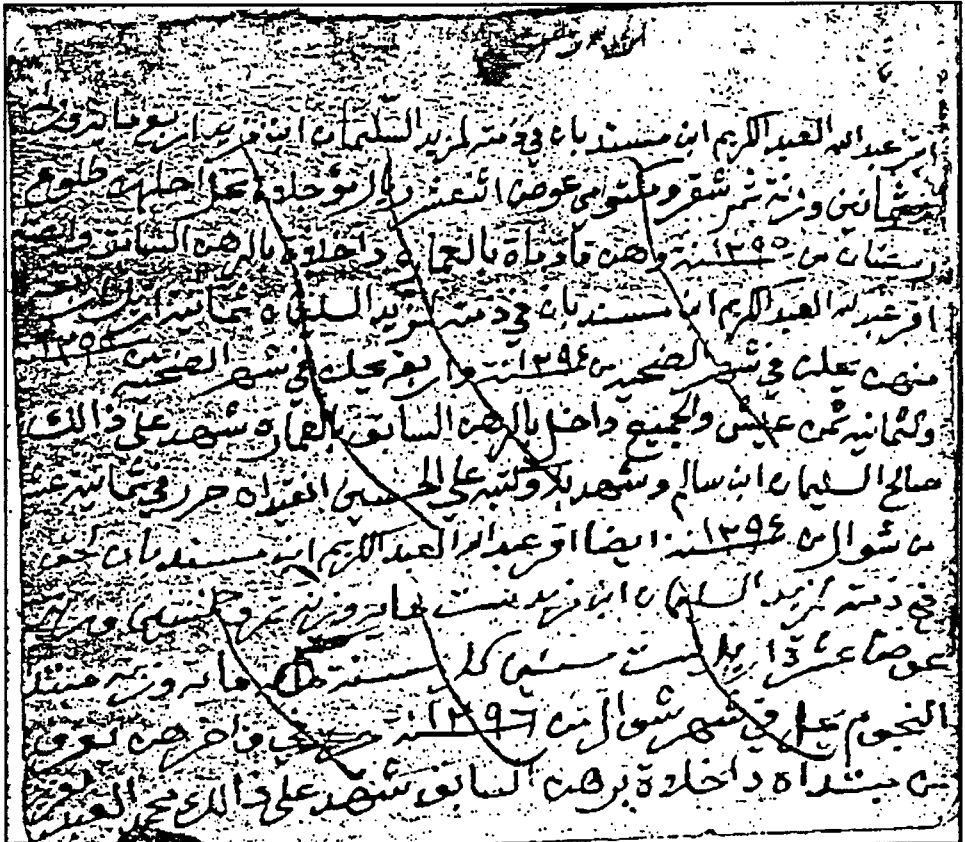 اقر عبد الله العبد الكريم ابن مسند بان في ذمته لمزيد السليمان ابن مزيد اربع مائة وزنة
وثمانين وزنة تمر شقر ومكتومي عوض اثنعشر ريال مؤجلات يحل اجلهن طلوع
رمضان من ١٢٩٥ سنة وهن قادمات بالعمارة داخلات بالرهن السابق
اقر عبد الله العبد الكريم ابن مسند بان في ذمته لمزيد السليمان ثمانية اريل اربعة
منهن يحلن في شهر الضحية من ١٢٩٤ سنة واربعة يحلن في شهر الضحية ١٢٩٥
والثمانية ثمن عيش والجميع داخل بالرهن السابق بالعمارة شهد على ذالك
صالح السليمان ابن سالم وشهد به وكتبه علي الحسين حرر في ثمانية
من شوال من ١٢٩٤ سنة ايضا اقر عبد الله العبد الكريم ابن مسند بان
في ذمته لمزيد السليمان ابن مزيد ست مائة وزنة تمر وخمسين وزنة
عوض عشرة اريل ست سنين كل سنة مائة وزنة مبتد
النجوم يحل في شهر شوال من ١٢٩٦ سنة
من مبتداه داخلات برهن السابق شهد على ذالك محمد العبد